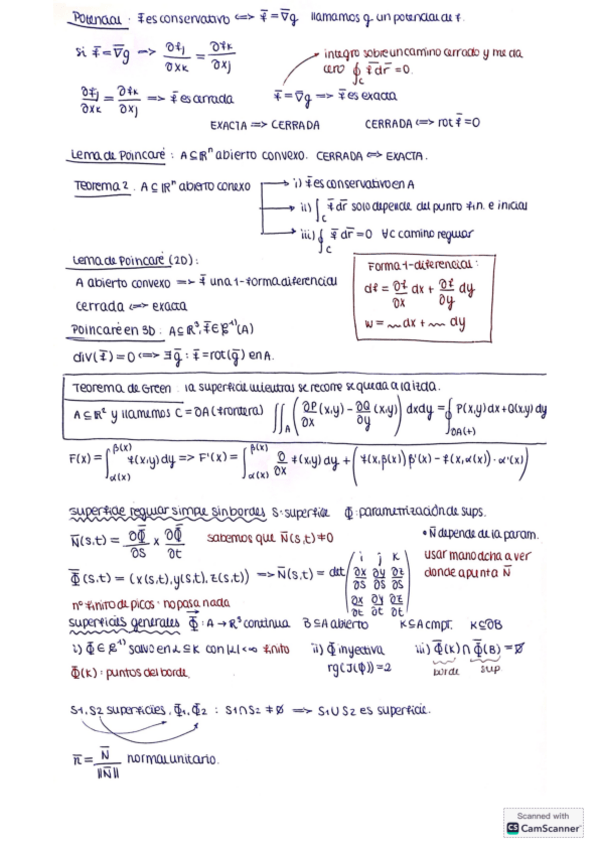 Potencial : f̄ es conservativo <=> f̄ = ∇̄g llamamos g un potencial de f.
si f̄ = ∇̄g => ∂fj/∂xk = ∂fk/∂xj
integro sobre un camino cerrado y me da cero ∮_C f̄ dr̄ = 0.
∂fj/∂xk = ∂fk/∂xj => f̄ es cerrada f̄ = ∇̄g => f̄ es exacta
EXACTA => CERRADA CERRADA <=> rot f̄ = 0
Lema de Poincaré : A ⊆ ℝⁿ abierto convexo. CERRADA <=> EXACTA.
Teorema 2 . A ⊆ ℝⁿ abierto conexo
i) f̄ es conservativo en A
ii) ∫_C f̄ dr̄ solo depende del punto fin. e inicial
iii) ∮_C f̄ dr̄ = 0 ∀C camino regular
Lema de Poincaré (2D) :
A abierto convexo => f̄ una 1-forma diferencial
cerrada <=> exacta
Forma 1-diferencial :
df = ∂f/∂x dx + ∂f/∂y dy
w = ~ dx + ~ dy
Poincaré en 3D : A ⊆ ℝ³, f̄ ∈ C¹⁾(A)
div(f̄) = 0 <=> ∃ḡ : f̄ = rot(ḡ) en A.
Teorema de Green : la superficie mientras se recorre se queda a la izda.
A ⊆ ℝ² y llamemos C = ∂A (frontera) ∬_A (∂P/∂x (x,y) − ∂Q/∂y (x,y)) dxdy = ∮_∂A(+) P(x,y)dx + Q(x,y)dy
F(x) = ∫_α(x)^β(x) f(x,y)dy => F'(x) = ∫_α(x)^β(x) ∂/∂x f(x,y)dy + (f(x,β(x))β'(x) − f(x,α(x))·α'(x))
superficie regular simple sin bordes S: superficie Φ̄: parametrización de sups.
N̄(s,t) = ∂Φ̄/∂s x ∂Φ̄/∂t sabemos que N̄(s,t) ≠ 0
• N̄ depende de la param.
usar mano dcha a ver
donde apunta N̄
Φ̄(s,t) = (x(s,t), y(s,t), z(s,t)) => N̄(s,t) = det (i j k ; ∂x/∂s ∂y/∂s ∂z/∂s ; ∂x/∂t ∂y/∂t ∂z/∂t)
nº finito de picos : no pasa nada
superficies generales Φ̄ : A → ℝ³ continua B ⊆ A abierto K ⊆ A cmpt. K ⊆ ∂B
i) Φ̄ ∈ C¹⁾ salvo en L ⊆ K con |L| < ∞ finito ii) Φ̄ inyectiva iii) Φ̄(K) ∩ Φ̄(B) = ∅
rg(J(Φ̄)) = 2 borde sup
Φ̄(K) : puntos del borde.
S1, S2 superficies, Φ̄1, Φ̄2 : S1∩S2 ≠ ∅ => S1∪S2 es superficie.
n̄ = N̄/||N̄|| normal unitario.
Scanned with
CS CamScanner